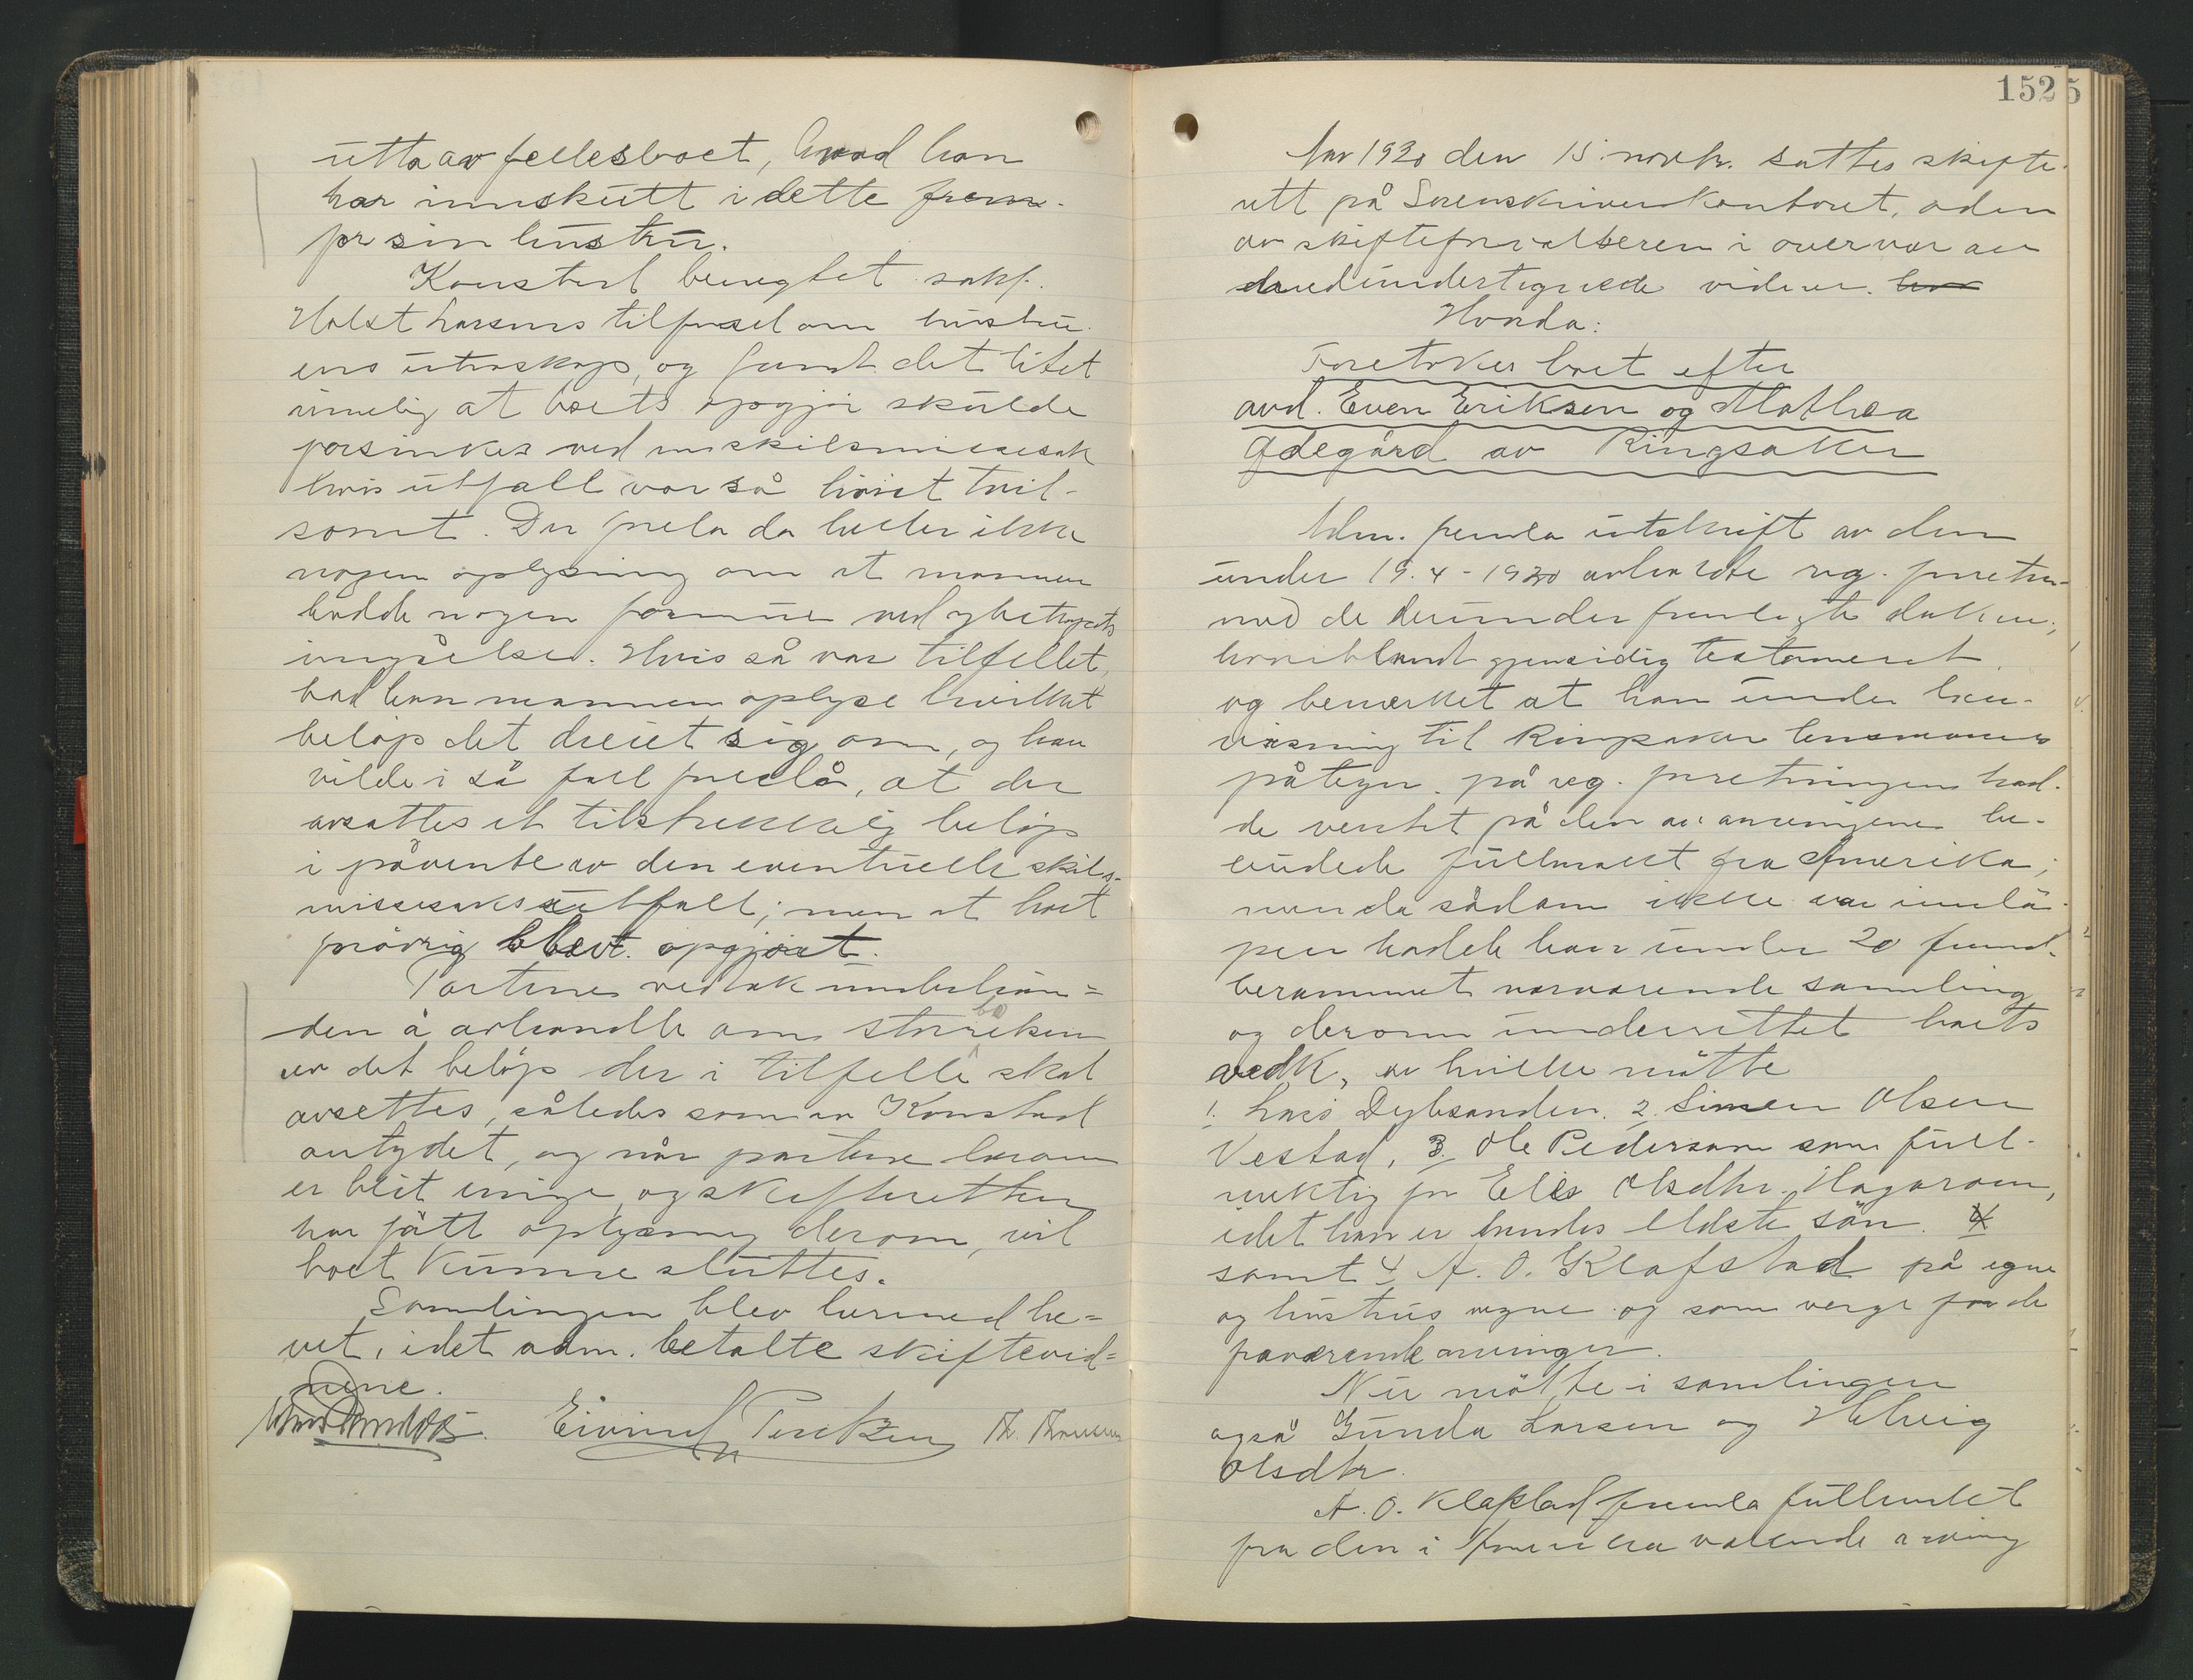 utta av fellesboet, hvad han
har innskutt i dette frem-
for sin hustru.
Konstad benegtet sakf.
Holst Larsens tilførsel om hustru-
ens utroskap, og fandt det litet
rimelig at boets opgjør skulde
forsinkes ved en skilsmissesak
hvis utfall var så høist tvil-
somt. Der forelå da heller ikke
nogen oplysning om at mannen
hadde nogen formue ved egteskapets
inngåelse. Hvis så var tilfellet,
bad han mannen oplyse hvilket
beløp det dreiet sig om, og han
vilde i så fall foreslå, at der
avsattes et tilstrekkelig beløp
i påvente av den eventuelle skils-
missesaks utfall; men at boet
forøvrig blev opgjort.
Partene vedtok underhån-
den å avhandle om størrelsen
av det beløp der i tilfelle skal
avsettes, således som av Konstad
antydet, og når partene herom
er blit enige, og skifteretten
har fått oplysning derom, vil
boet kunne sluttes.
Samlingen blev hermed he-
vet, idet adm. betalte skiftevid-
nene.
Eivind
152
År 1930 den 15. novbr. sattes skifte-
rett på Sorenskriverkontoret,
av skifteforvalteren i overvær av
medundertegnede vidner.
Hvorda:
Foretokes boet efter
avd. Even Eriksen og Mathea
Ødegård av Ringsaker
Adm. fremla utskrift av den
under 19.4-1930 avholdte reg. forretn.
med de derunder fremlagte dokum.,
hvoriblandt gjensidig testament
og bemerket at han under hen-
visning til Ringsaker lensmanns
påtegn. på reg. forretningen had-
de ventet på den av arvingene be-
budede fullmakt fra Amerika;
men da sådann ikke var innlø-
pen hadde han under 20 f.m.
berammet nærværende samling
og derom underrettet boets
vedk., av hvilke møtte
1. Lars Dybsanden. 2. Simen Olsen
Vestad, 3. Ole Pedersen som full-
mektig for Elis Olsdtr. Hagaroen,
idet han er hendes eldste søn.
samt 4. A. O. Klafstad på egne
og hustrus vegne og som verge for de
fraværende arvinger.
Nu møtte i samlingen
også Gunda Larsen og Helvig
Olsdtr.
A. O. Klafstad fremla fullmakt
fra den i Amerika værende arving